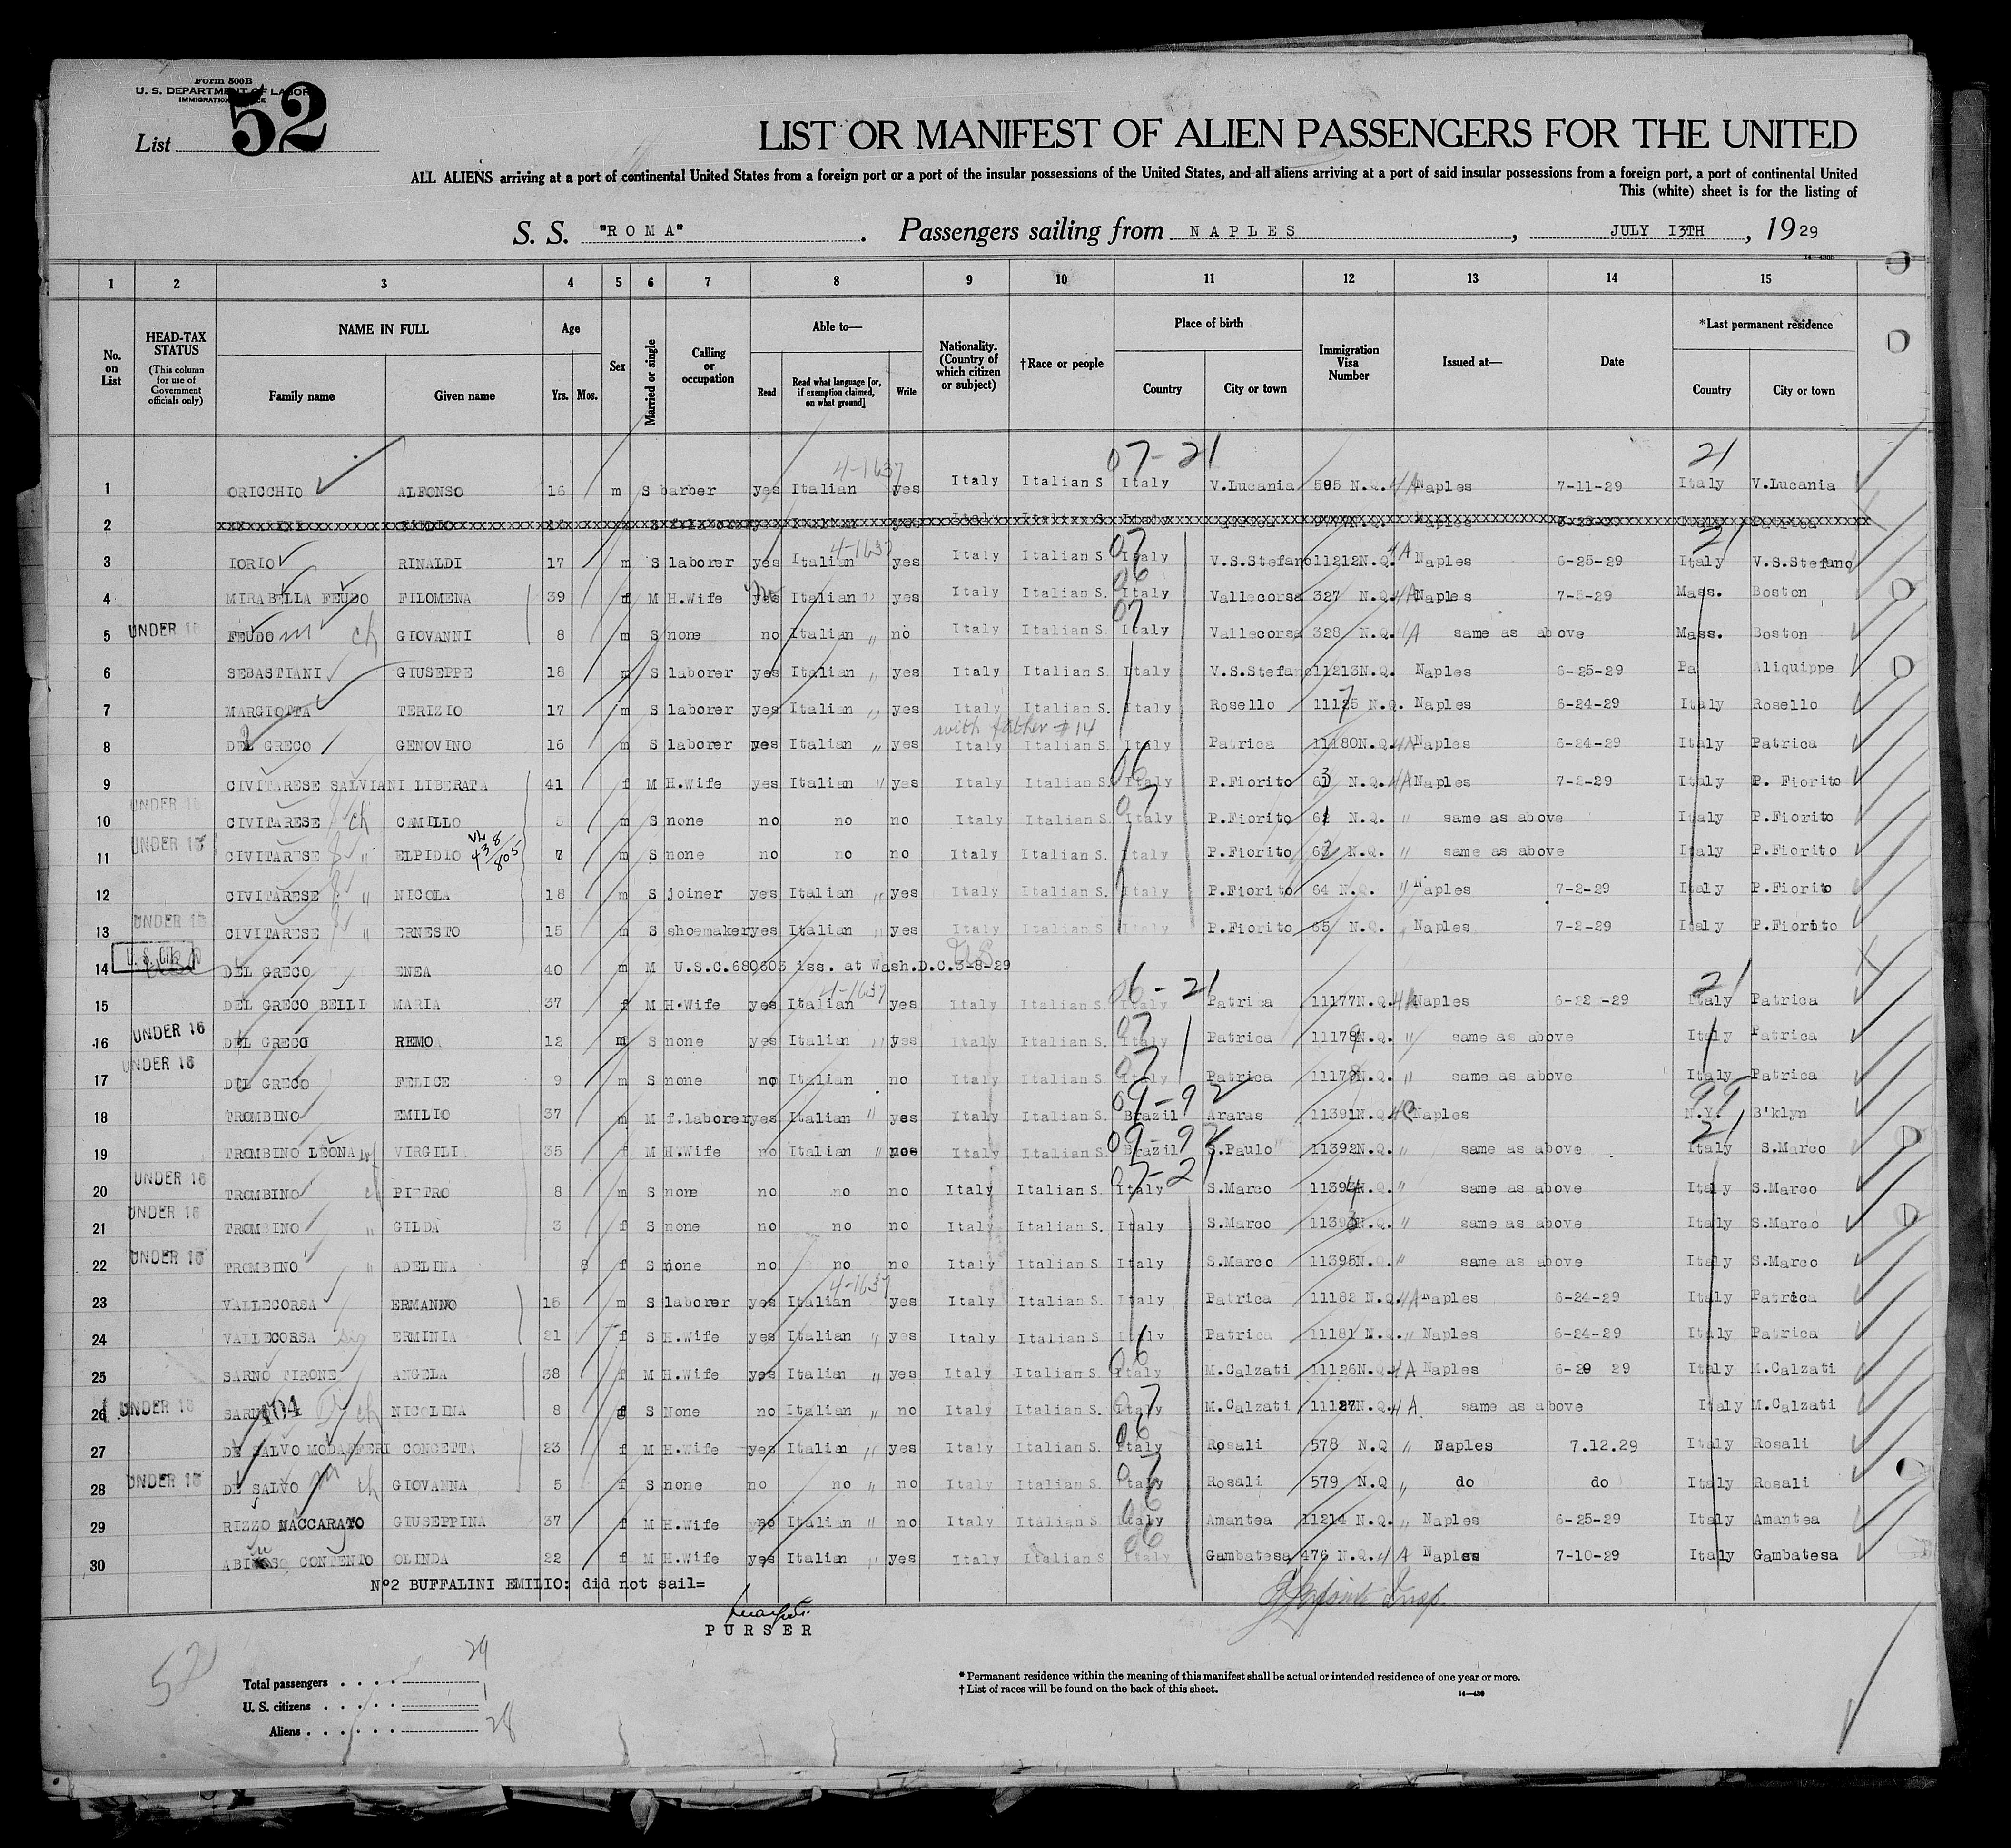 Form 500B
U. S. DEPARTMENT OF LABOR
IMMIGRATION SERVICE
List 52
LIST OR MANIFEST OF ALIEN PASSENGERS FOR THE UNITED
ALL ALIENS arriving at a port of continental United States from a foreign port or a port of the insular possessions of the United States, and all aliens arriving at a port of said insular possessions from a foreign port, a port of continental United
This (white) sheet is for the listing of
S. S. "ROMA". Passengers sailing from NAPLES, JULY 13TH, 1929
14-430b
1 2 3 4 5 6 7 8 9 10 11 12 13 14 15
No. on List
HEAD-TAX STATUS (This column for use of Government officials only)
NAME IN FULL
Family name Given name
Age
Yrs. Mos.
Sex
Married or single
Calling or occupation
Able to—
Read Read what language [or, if exemption claimed, on what ground] Write
Nationality. (Country of which citizen or subject)
†Race or people
Place of birth
Country City or town
Immigration Visa Number
Issued at—
Date
*Last permanent residence
Country City or town
07-21 21
4-1637
1 ORICCHIO ALFONSO 16 m S barber yes Italian yes Italy Italian S Italy V.Lucania 595 N.Q. 4A Naples 7-11-29 Italy V.Lucania
2
4-1637 07 21
3 IORIO RINALDI 17 m S laborer yes Italian yes Italy Italian S. Italy V.S.Stefano 11212N.Q. 4A Naples 6-25-29 Italy V.S.Stefano
4 MIRABELLA FEUDO FILOMENA 39 f M H.Wife yes Italian " yes Italy Italian S. 06 Italy Vallecorsa 327 N.Q. 4A Naples 7-5-29 Mass. Boston
5 UNDER 16 FEUDO m ch GIOVANNI 8 m S none no Italian " no Italy Italian S. 07 Italy Vallecorsa 328 N.Q. 4A same as above Mass. Boston
6 SEBASTIANI GIUSEPPE 18 m S laborer yes Italian " yes Italy Italian S. Italy V.S.Stefano 11213N.Q. Naples 6-25-29 Pa Aliquippe
7 MARGIOTTA TERIZIO 17 m S laborer yes Italian " yes Italy Italian S. Italy Rosello 11125 N.Q. Naples 6-24-29 Italy Rosello
with father #14
8 DEL GRECO GENOVINO 16 m S laborer yes Italian " yes Italy Italian S. Italy Patrica 11180N.Q. 4A Naples 6-24-29 Italy Patrica
9 CIVITARESE SALVIANI LIBERATA 41 f M H.Wife yes Italian " yes Italy Italian S. 06 Italy P.Fiorito 63 N.Q. 4A Naples 7-2-29 Italy P. Fiorito
10 UNDER 16 CIVITARESE ch CAMILLO m S none no no no Italy Italian S. 07 Italy P.Fiorito N.Q. " same as above Italy P.Fiorito
11 UNDER 16 CIVITARESE " ELPIDIO 438/805 7 m S none no no no Italy Italian S. Italy P.Fiorito N.Q. " same as above Italy P.Fiorito
12 CIVITARESE " NICOLA 18 m S joiner yes Italian " yes Italy Italian S. Italy P.Fiorito 64 N.Q. " Naples 7-2-29 Italy P.Fiorito
13 UNDER 16 CIVITARESE " ERNESTO 15 m S shoemaker yes Italian " yes Italy Italian S. Italy P.Fiorito 65 N.Q. Naples 7-2-29 Italy P.Fiorito
14 DEL GRECO ENEA 40 m M U.S.C.680605 iss. at Wash.D.C.3-8-29
4-1637 06-21 21
15 DEL GRECO BELLI MARIA 37 f M H.Wife yes Italian yes Italy Italian S. Italy Patrica 11177N.Q. 4A Naples 6-22-29 Italy Patrica
16 UNDER 16 DEL GRECO REMO 12 m S none yes Italian " yes Italy Italian S. 07 Italy Patrica N.Q. " same as above Italy Patrica
17 UNDER 16 DEL GRECO FELICE 9 m S none no Italian no Italy Italian S. 07 Italy Patrica N.Q. " same as above Italy Patrica
18 TROMBINO EMILIO 37 m M f.laborer yes Italian " yes Italy Italian S. 09-92 Brazil Araras 11391N.Q. Naples 99 N.Y. B'klyn
19 TROMBINO LEONA wf VIRGILI 35 f M H.Wife no Italian " no Italy Italian S. 09-92 Brazil S.Paulo 11392N.Q. " same as above 21 Italy S.Marco
20 UNDER 16 TROMBINO ch PIETRO 8 m S none no no no Italy Italian S. 07-21 Italy S.Marco 11394N.Q. " same as above Italy S.Marco
21 UNDER 16 TROMBINO " GILDA 3 f S none no no no Italy Italian S. Italy S.Marco 11393N.Q. " same as above Italy S.Marco
22 UNDER 16 TROMBINO " ADELINA 8 f S none no no no Italy Italian S. Italy S.Marco 11395N.Q. " same as above Italy S.Marco
4-1637
23 VALLECORSA ERMANNO 16 m S laborer yes Italian yes Italy Italian S. Italy Patrica 11182 N.Q. 4A Naples 6-24-29 Italy Patrica
24 VALLECORSA sis ERMINIA 21 f S H.Wife yes Italian " yes Italy Italian S. Italy Patrica 11181 N.Q. " Naples 6-24-29 Italy Patrica
25 SARNO TIRONE ANGELA 38 f M H.Wife yes Italian " yes Italy Italian S. 06 Italy M.Calzati 11126N.Q. 4A Naples 6-20 29 Italy M.Calzati
26 UNDER 16 SARNO 104 ch NICOLINA 8 f S None no Italian " no Italy Italian S. 07 Italy M.Calzati 11127N.Q. 4A same as above Italy M.Calzati
27 DE SALVO MODAFFERI CONCETTA 23 f M H.Wife yes Italian " yes Italy Italian S. 06 Italy Rosali 578 N.Q " Naples 7.12.29 Italy Rosali
28 UNDER 16 DE SALVO m ch GIOVANNA 5 f S none no no " no Italy Italian S. 07 Italy Rosali 579 N.Q " do do Italy Rosali
29 RIZZO NACCARATO GIUSEPPINA 37 f M H.Wife no Italian " no Italy Italian S. 06 Italy Amantea 11214 N.Q. " Naples 6-25-29 Italy Amantea
30 CONTENTO OLINDA 22 f M H.Wife yes Italian " yes Italy Italian S 06 Italy Gambatesa 476 N.Q. 4A Naples 7-10-29 Italy Gambatesa
N°2 BUFFALINI EMILIO: did not sail=
PURSER
52
Total passengers . . . . 29
U. S. citizens . . . . . . 1
Aliens . . . . . . 28
* Permanent residence within the meaning of this manifest shall be actual or intended residence of one year or more.
† List of races will be found on the back of this sheet.
14-430